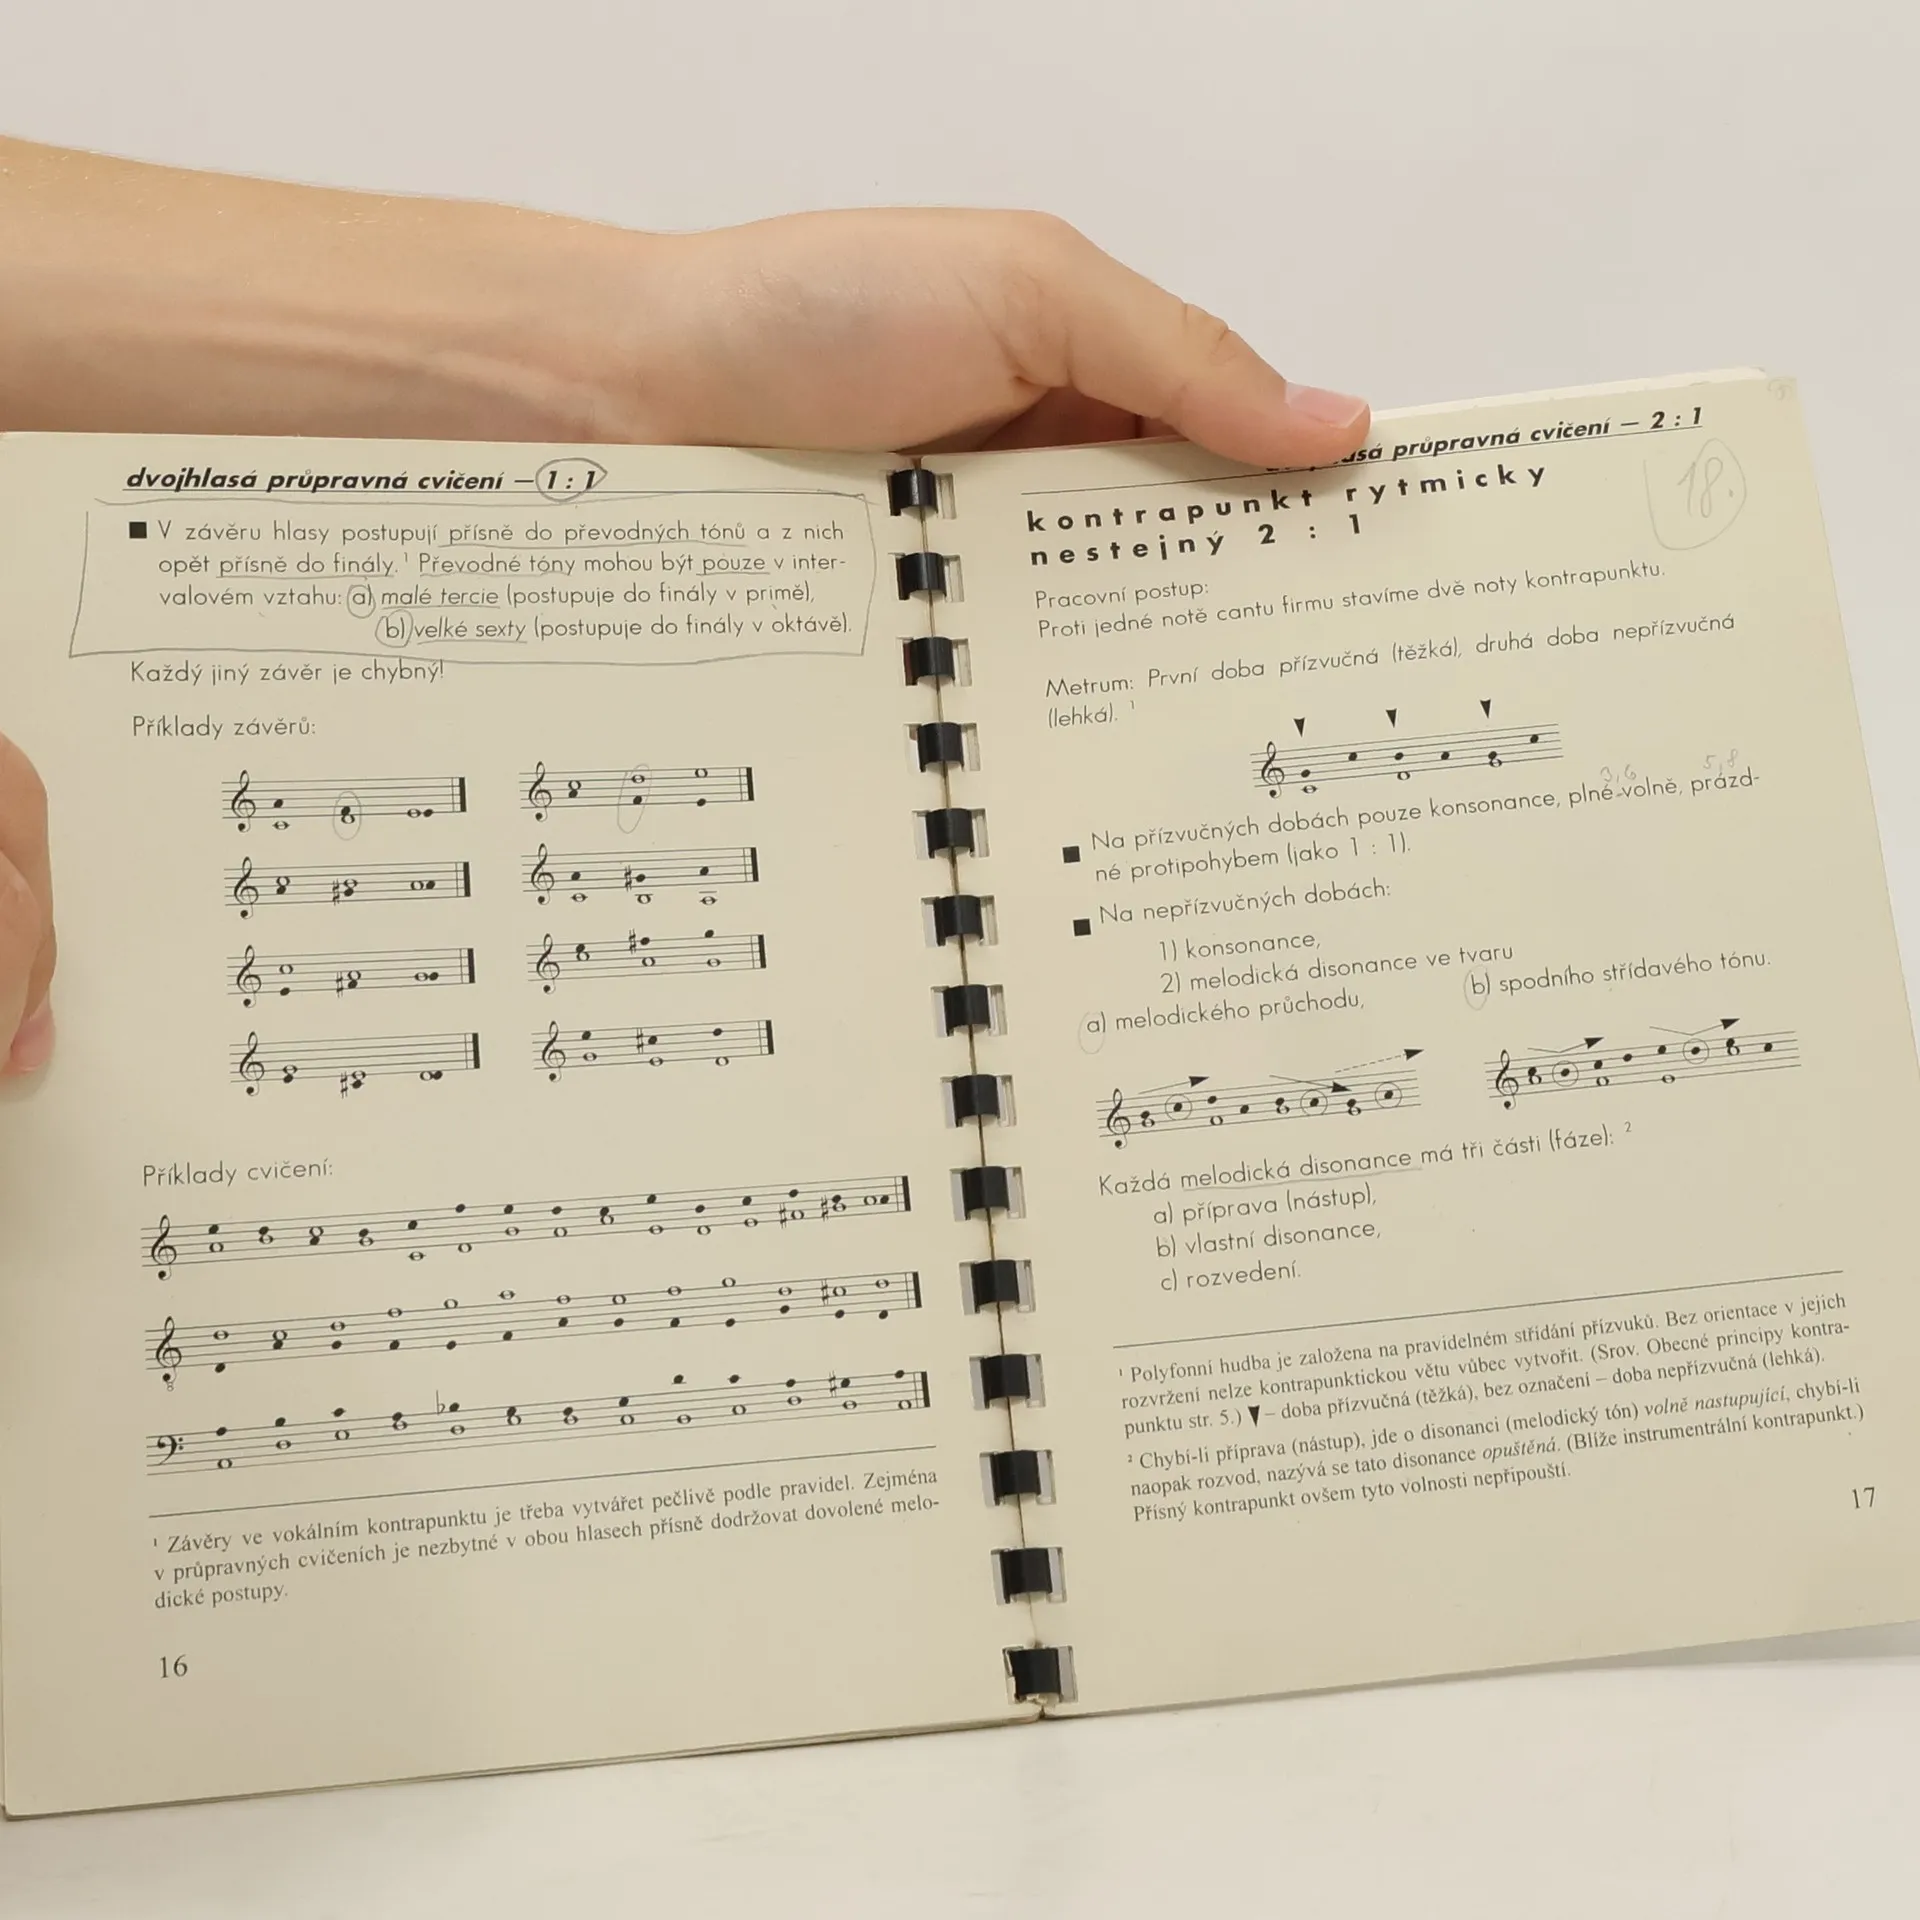 dvojhlasá průpravná cvičení – 1 : 1
■ V závěru hlasy postupují přísně do převodných tónů a z nich
opět přísně do finály. ¹ Převodné tóny mohou být pouze v inter-
valovém vztahu: a) malé tercie (postupuje do finály v primě),
b) velké sexty (postupuje do finály v oktávě).
Každý jiný závěr je chybný!
Příklady závěrů:
Příklady cvičení:
8
¹ Závěry ve vokálním kontrapunktu je třeba vytvářet pečlivě podle pravidel. Zejména
v průpravných cvičeních je nezbytné v obou hlasech přísně dodržovat dovolené melo-
dické postupy.
16
průpravná cvičení – 2 : 1
18.
kontrapunkt rytmicky
nestejný 2 : 1
Pracovní postup:
Proti jedné notě cantu firmu stavíme dvě noty kontrapunktu.
Metrum: První doba přízvučná (těžká), druhá doba nepřízvučná
(lehká). ¹
3,6 5,8
■ Na přízvučných dobách pouze konsonance, plné volně, prázd-
né protipohybem (jako 1 : 1).
■ Na nepřízvučných dobách:
1) konsonance,
2) melodická disonance ve tvaru
a) melodického průchodu, b) spodního střídavého tónu.
Každá melodická disonance má tři části (fáze): ²
a) příprava (nástup),
b) vlastní disonance,
c) rozvedení.
¹ Polyfonní hudba je založena na pravidelném střídání přízvuků. Bez orientace v jejich
rozvržení nelze kontrapunktickou větu vůbec vytvořit. (Srov. Obecné principy kontra-
punktu str. 5.) ▼ – doba přízvučná (těžká), bez označení – doba nepřízvučná (lehká).
² Chybí-li příprava (nástup), jde o disonanci (melodický tón) volně nastupující, chybí-li
naopak rozvod, nazývá se tato disonance opuštěná. (Blíže instrumentrální kontrapunkt.)
Přísný kontrapunkt ovšem tyto volnosti nepřipouští.
17